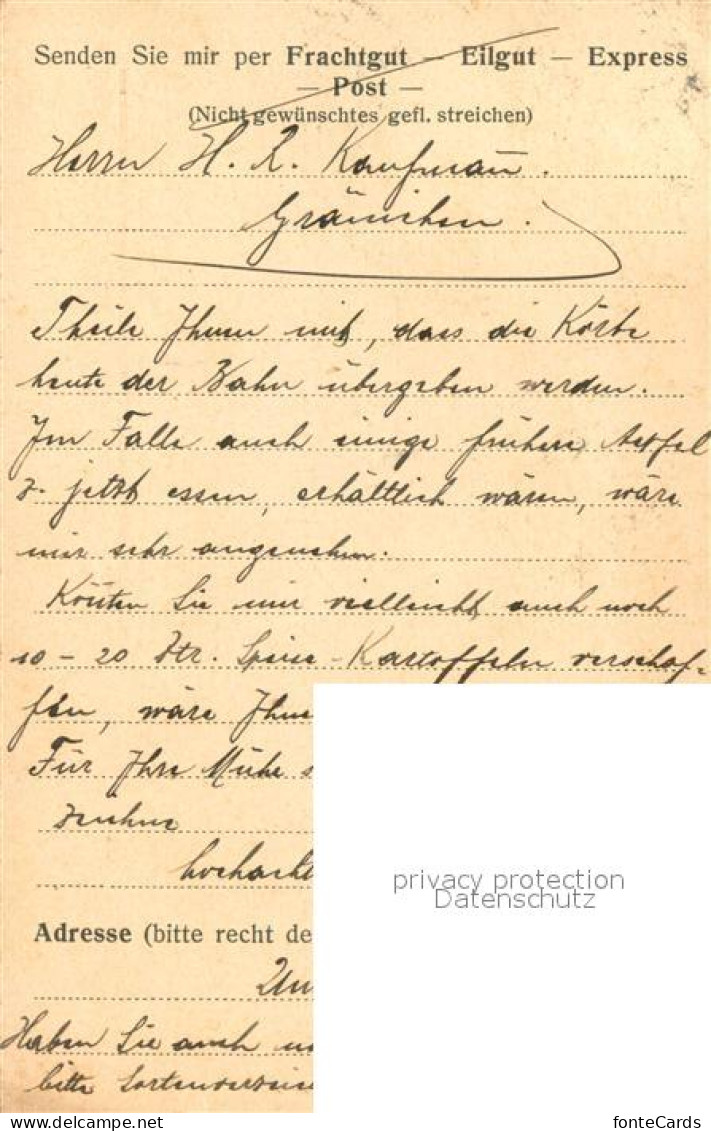 Senden Sie mir per Frachtgut — Eilgut — Express
— Post —
(Nicht gewünschtes gefl. streichen)
Herrn H. R. Kaufmann.
Gränichen.
Theile Ihnen mit, dass die Körbe
heute der Bahn übergeben werden.
Im Falle auch einige frühere Aepfel
z. jetzt essen, erhältlich wären, wäre
mir sehr angenehm.
Könten Sie mir vielleicht auch noch
10-20 Ztr. Speise-Kartoffeln verschaf-
fen, wäre Ihne
Für Ihre Mühe
zeichne
hochacht
Adresse (bitte recht de
Haben Sie auch
bitte
privacy protection
Datenschutz
fonteCards